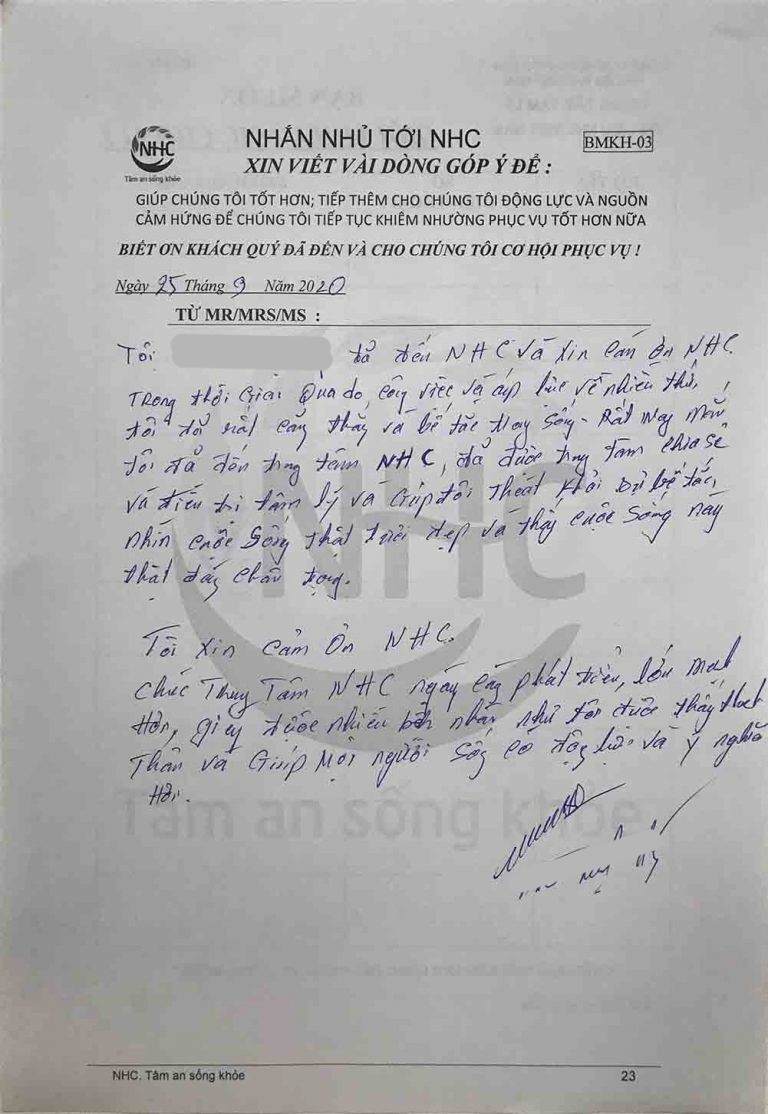 NHC
Tâm an sống khỏe
NHẮN NHỦ TỚI NHC
BMKH-03
XIN VIẾT VÀI DÒNG GÓP Ý ĐỂ :
GIÚP CHÚNG TÔI TỐT HƠN; TIẾP THÊM CHO CHÚNG TÔI ĐỘNG LỰC VÀ NGUỒN
CẢM HỨNG ĐỂ CHÚNG TÔI TIẾP TỤC KHIÊM NHƯỜNG PHỤC VỤ TỐT HƠN NỮA
BIẾT ƠN KHÁCH QUÝ ĐÃ ĐẾN VÀ CHO CHÚNG TÔI CƠ HỘI PHỤC VỤ !
Ngày 25 Tháng 9 Năm 2020
TỪ MR/MRS/MS :
Tôi đã đến NHC và xin cám ơn NHC.
Trong thời gian qua do công việc và áp lực về nhiều thứ,
tôi đã rất căng thẳng và bế tắc trong sống - Rất may mắn
tôi đã đến trung tâm NHC, đã được trung tâm chia sẻ
và điều trị tâm lý và giúp tôi thoát khỏi sự bế tắc,
nhìn cuộc sống thật tươi đẹp và thấy cuộc sống này
thật đáng chân trọng.
Tôi xin cảm ơn NHC.
Chúc Trung Tâm NHC ngày càng phát triển, lớn mạnh
hơn, giúp được nhiều bệnh nhân như tôi được thấy thoát
thân và giúp mọi người sống có động lực và ý nghĩa
hơn.
NHC
Tâm an sống khỏe
NHC. Tâm an sống khỏe
23